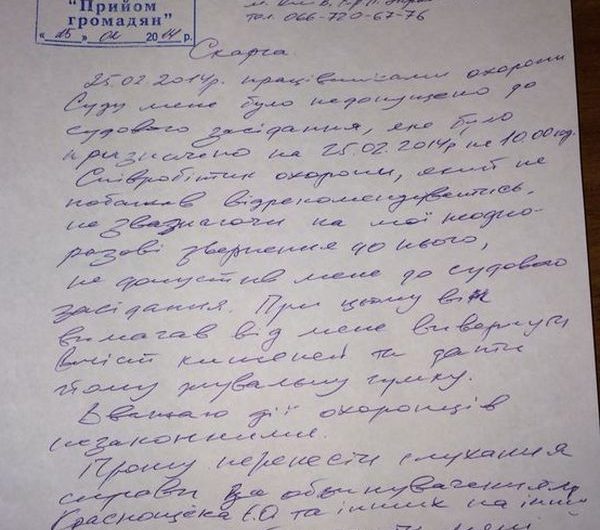 "Прийом
громадян"
« 25 » 02 2014 р.
м. Київ
тел. 066-720-67-76
Скарга
25.02.2014р. працівниками охорони
Суду мене було недопущено до
судового засідання, яке було
призначено на 25.02.2014р на 10.00 год.
Співробітник охорони, який не
побажав відрекомендуватись,
не зважаючи на мої неодно-
разові звернення до нього,
не допустив мене до судового
засідання. При цьому він
вимагав від мене вивернути
вміст кишеней та дати
йому жувальну гумку.
Вважаю дії охоронців
незаконними.
Прошу перенести слухання
справи за обвинуваченням
Краснощека Є.О та інших на інший